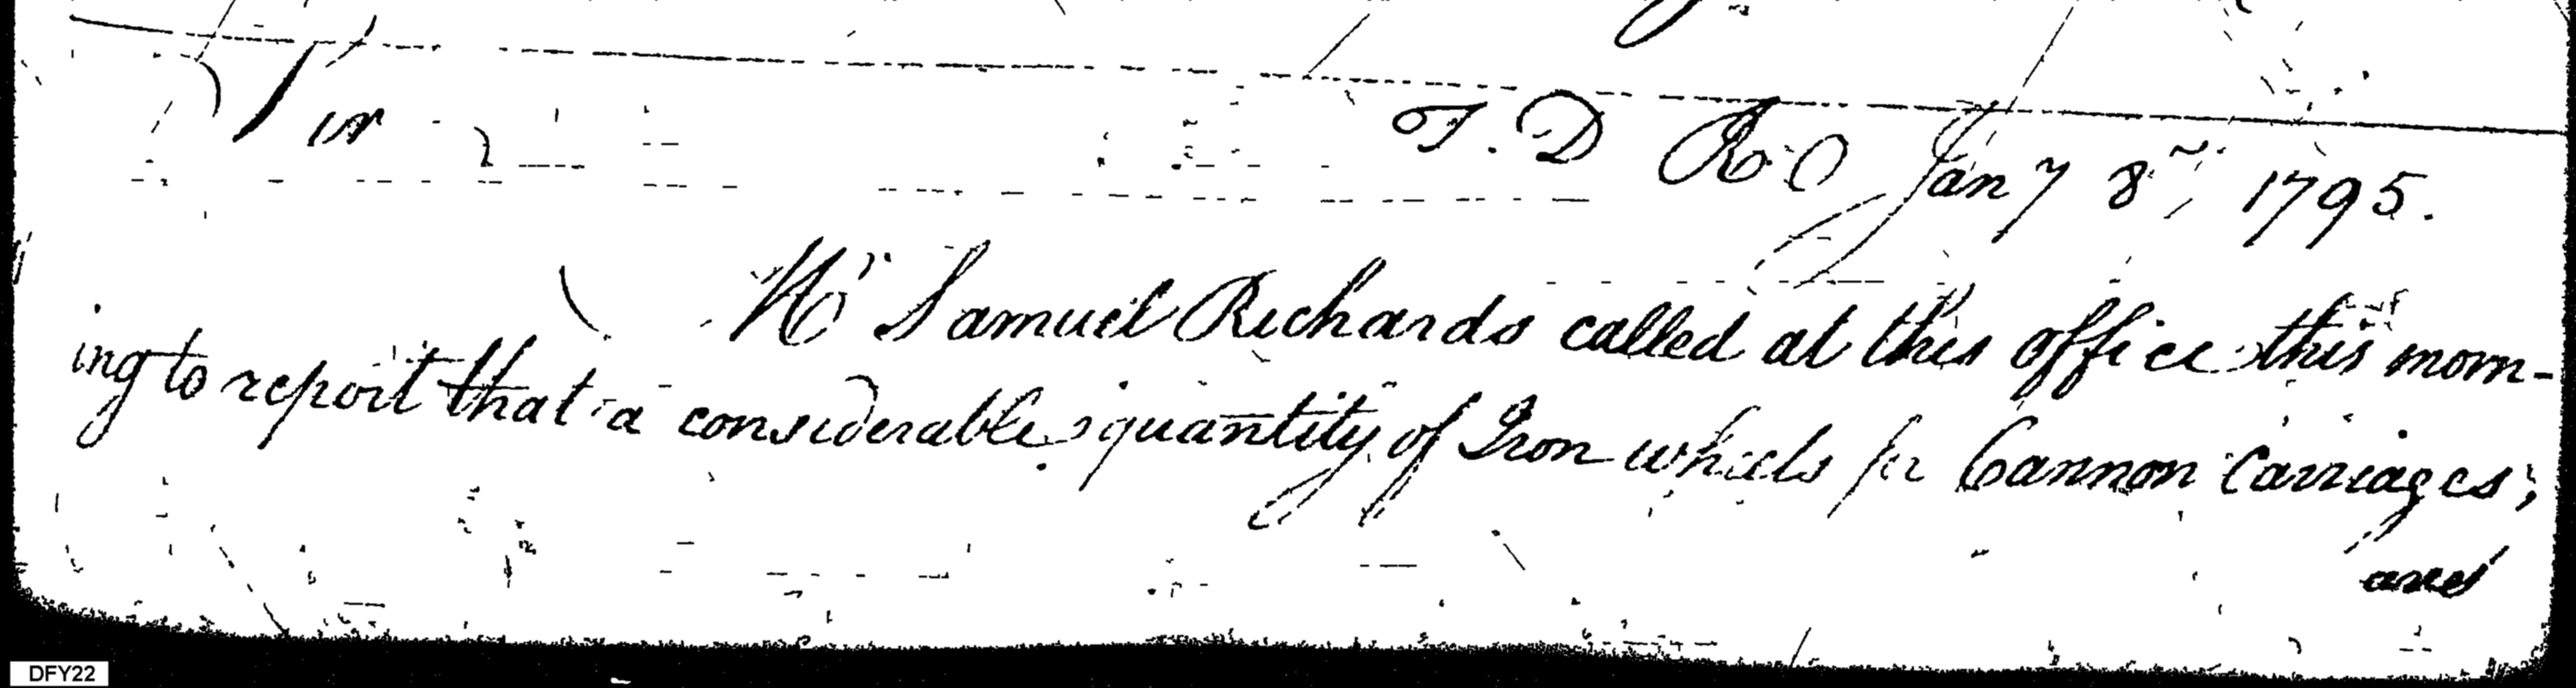 Sir T. D R. O Jany 8th, 1795.
Mr Samuel Richards called at this office this morn-
ing to report that a considerable quantity of Iron wheels for Cannon Carriages;
and
DFY22